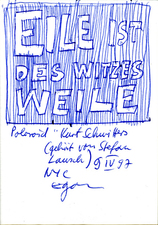 EILE IST
DES WITZES
WEILE
Poloroid "Kurt Schwitters
(gehört von Stefan
Lausch) 9 IV 97
NYC
Egon